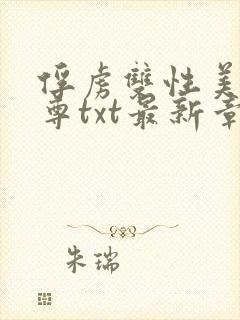 俘虏双性美
尊txt最新章
朱瑞